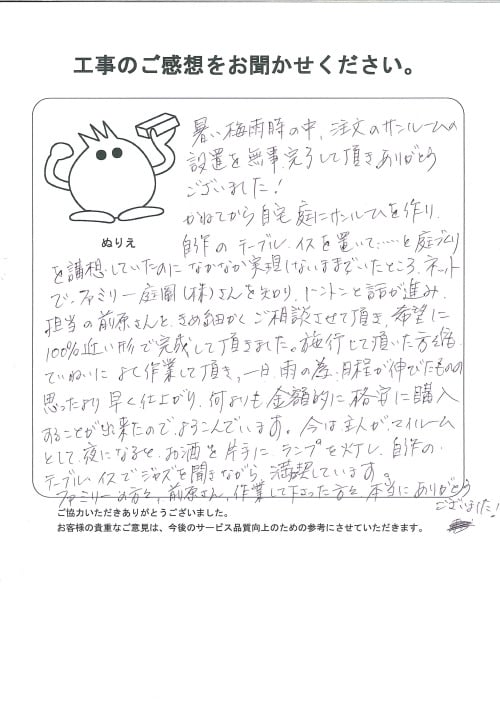 工事のご感想をお聞かせください。
暑い梅雨時の中、注文のサンルームの
設置を無事完了して頂きありがとう
ございました!
かねてから自宅庭にサンルームを作り、
自作のテーブル、イスを置いて……と庭づくり
ぬりえ
を構想していたのになかなか実現しないままでいたところ、ネット
で、ファミリー庭園(株)さんを知り、トントンと話が進み、
担当の前原さんと、きめ細かくご相談させて頂き、希望に
100%近い形で完成して頂きました。施行して頂いた方々も
ていねいに よく作業して頂き、一日、雨の為、日程が伸びたものの
思ったより早く仕上がり、何よりも金額的に格安に購入
することが出来たので、よろこんでいます。今は主人が、マイルーム
として、夜になると、お酒を片手に、ランプを灯し、自作の
テーブル、イスでジャズを聞きながら 満喫しています。
ファミリーの方々、前原さん、作業して下さった方々、本当にありがとう
ございました!
ご協力いただきありがとうございました。
お客様の貴重なご意見は、今後のサービス品質向上のための参考にさせていただきます。